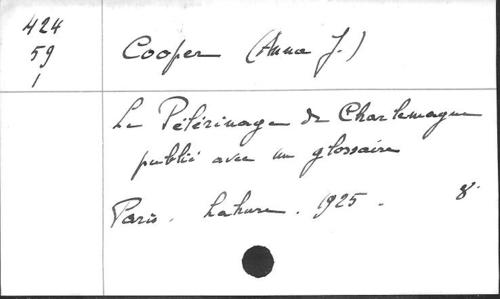 424
59
1
Cooper (Anna J.)
Le Pélérinage de Charlemagne
publié avec un glossaire
Paris. Lahure. 1925. 8°